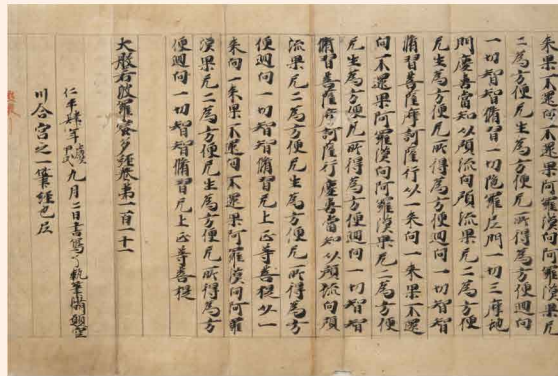 來果不還向不還果阿羅漢向阿羅漢果无
二為方便无生為方便无所得為方便迴向
一切智智修習一切陀羅尼門一切三摩地
門慶喜當知以預流向預流果无二為方便
无生為方便无所得為方便迴向一切智智
修習菩薩摩訶薩行以一來向一來果不還
向不還果阿羅漢向阿羅漢果无二為方便
无生為方便无所得為方便迴向一切智智
修習菩薩摩訶薩行慶喜當知以預流向預
流果无二為方便无生為方便无所得為方
便迴向一切智智修習无上正等菩提以一
來向一來果不還向不還果阿羅漢向阿羅
漢果无二為方便无生為方便无所得為方
便迴向一切智智修習无上正等菩提
大般若波羅蜜多經卷第一百一十一
仁平肆年九月二日書寫了執筆僧
川合宮之一筆經也